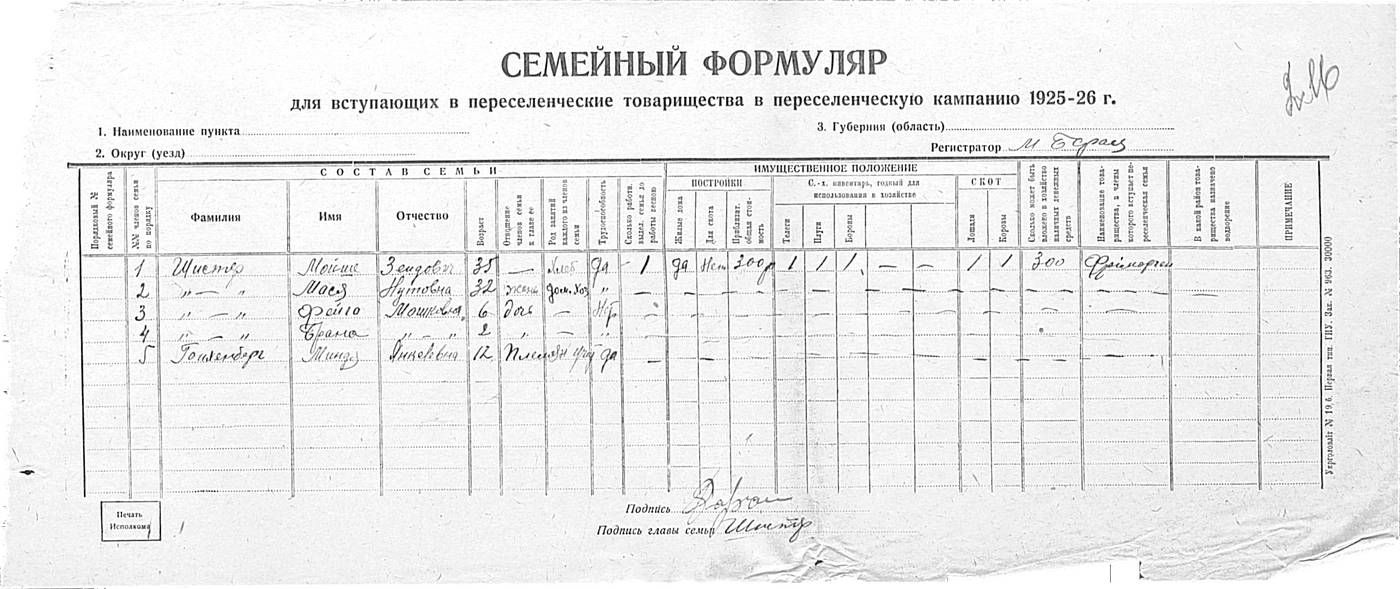 СЕМЕЙНЫЙ ФОРМУЛЯР
для вступающих в переселенческие товарищества в переселенческую кампанию 1925-26 г.
1. Наименование пункта
3. Губерния (область)
2. Округ (уезд)
Регистратор М
СОСТАВ СЕМЬИ
ИМУЩЕСТВЕННОЕ ПОЛОЖЕНИЕ
ПОСТРОЙКИ
С.-х. инвентарь, годный для использования в хозяйстве
СКОТ
Порядковый № семейного формуляра
№№ членов семьи по порядку
Фамилия
Имя
Отчество
Возраст
Отношение членов семьи к главе ее
Род занятий каждого из членов семьи
Трудоспособность
Сколько работн. выдел. семья до работы весною
Жилые дома
Для скота
Приблизит. общая стоимость
Телеги
Плуги
Бороны
Лошади
Коровы
Сколько может быть вложено в хозяйство наличных денежных средств
Наименование товарищества, в члены которого вступает переселенческая семья
В какой район товарищества назначено водворение
ПРИМЕЧАНИЕ
1 Шистер Мойше Зейдович 35 — Хлеб да 1 да Нет 300 р 1 1 1 — — 1 1 300
2 „ — „ Мася Нутовна 32 жена дом. хоз „ — — — — — — — — — — — — —
3 „ — „ Фейга Мошковна 6 дочь — Нтр — — — — — — — — — — — —
4 „ — „ Брана „ „ 2 „ — „
5 Минда Янкелевна 12 Племян уч да — — — — — — — — — — — —
Печать Исполкома
Подпись
Подпись главы семьи Шистер
Укрголовліт № 19,6. Первая тип. ГИУ. Зак. № 963. 30000